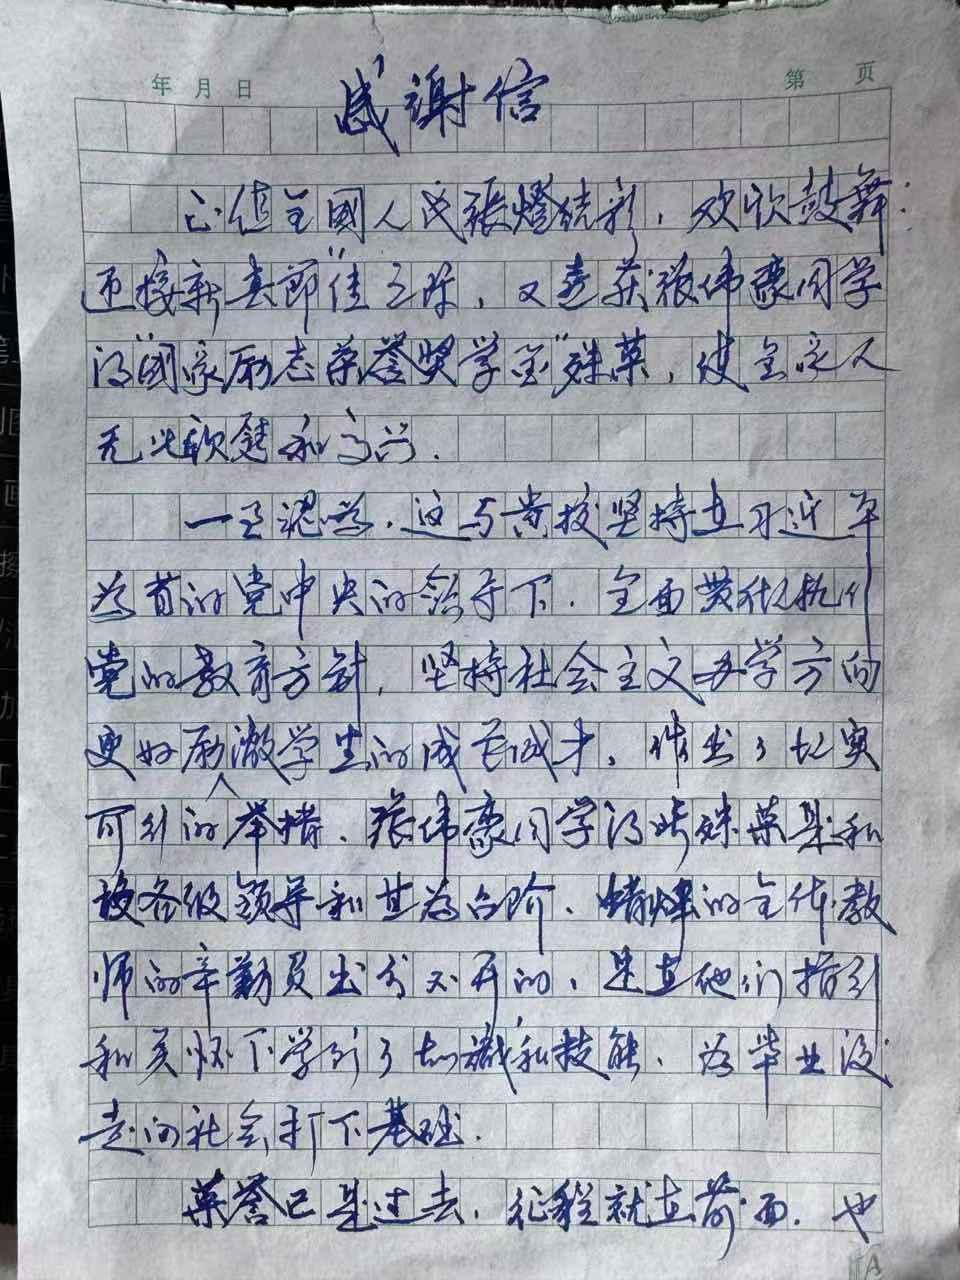 年 月 日 第 页
感谢信
正值全國人民張燈结彩，欢欣鼓舞
迎接新春"佳节之际，又喜获張伟豪同学
得"國家励志荣誉奖学金"殊荣，使全家人
无比欣慰和高兴.
一至認为，这与贵校坚持在习近平
为首的党中央的领导下.全面贯彻执行
党的教育方针，坚持社会主义办学方向
更好励激学生的成长成才，作出了切实
可行的举措、張伟豪同学得此殊荣是和
校各级领导和甘为台阶、蜡烛的全体教
师的辛勤付出分不开的，是在他们指引
和关怀下学到了知識和技能、为毕业後
走向社会打下基础.
荣誉已是过去，征程就在前面.也